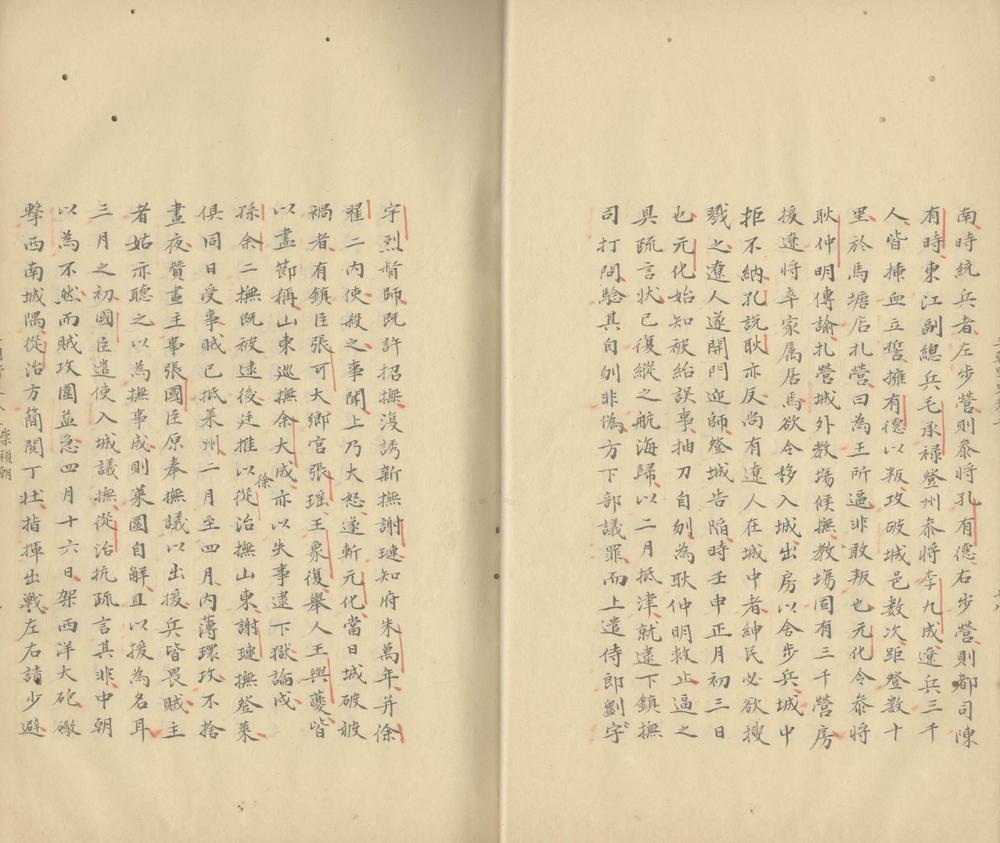 南時統兵者左步營則叅將孔有德右步營則都司陳
有時東江副總兵毛承祿登州叅將李九成遼兵三千
人皆揷血立誓擁有德以叛攻破城邑數次距登數十
里於馬塘店扎營曰為王所逼非敢叛也元化令叅將
耿仲明傳諭扎營城外教塲候撫教塲固有三千營房
援遼將卒家属居焉欲令移入城出房以舍步兵城中
拒不納孔說耿亦反尚有遼人在城中者紳民必欲搜
戮之遼人遂開門迎師登城告陷時壬申正月初三日
也元化始知被紿誤事抽刀自刎為耿仲明救止逼之
具疏言狀已復縱之航海歸以二月抵津就逮下鎮撫
司打問驗其自刎非偽方下部議罪而上遣侍郎劉宇
宇烈督師既許招撫復誘新撫謝璉知府朱萬年并徐
翟二內使殺之事聞上乃大怒遂斬元化當日城破被
禍者有鎮臣張可大鄉官張瑶王象復舉人王與夔皆
以盡節稱山東巡撫余大成亦以失事逮下獄論戍
孫余二撫既被逮後廷推以徐從治撫山東謝璉撫登萊
俱同日受事賊已抵萊州二月至四月內薄環攻不捨
晝夜贊畫主事張國臣原奉撫議以出援兵皆畏賊主
者姑亦聽之以為撫事成則萊圍自解且以援為名耳
三月之初國臣遣使入城議撫從治抗疏言其非中朝
以為不然而賊攻圍益急四月十六日架西洋大砲礮
擊西南城隅從治方簡閱丁壯指揮出戰左右請少避
崇禎朝